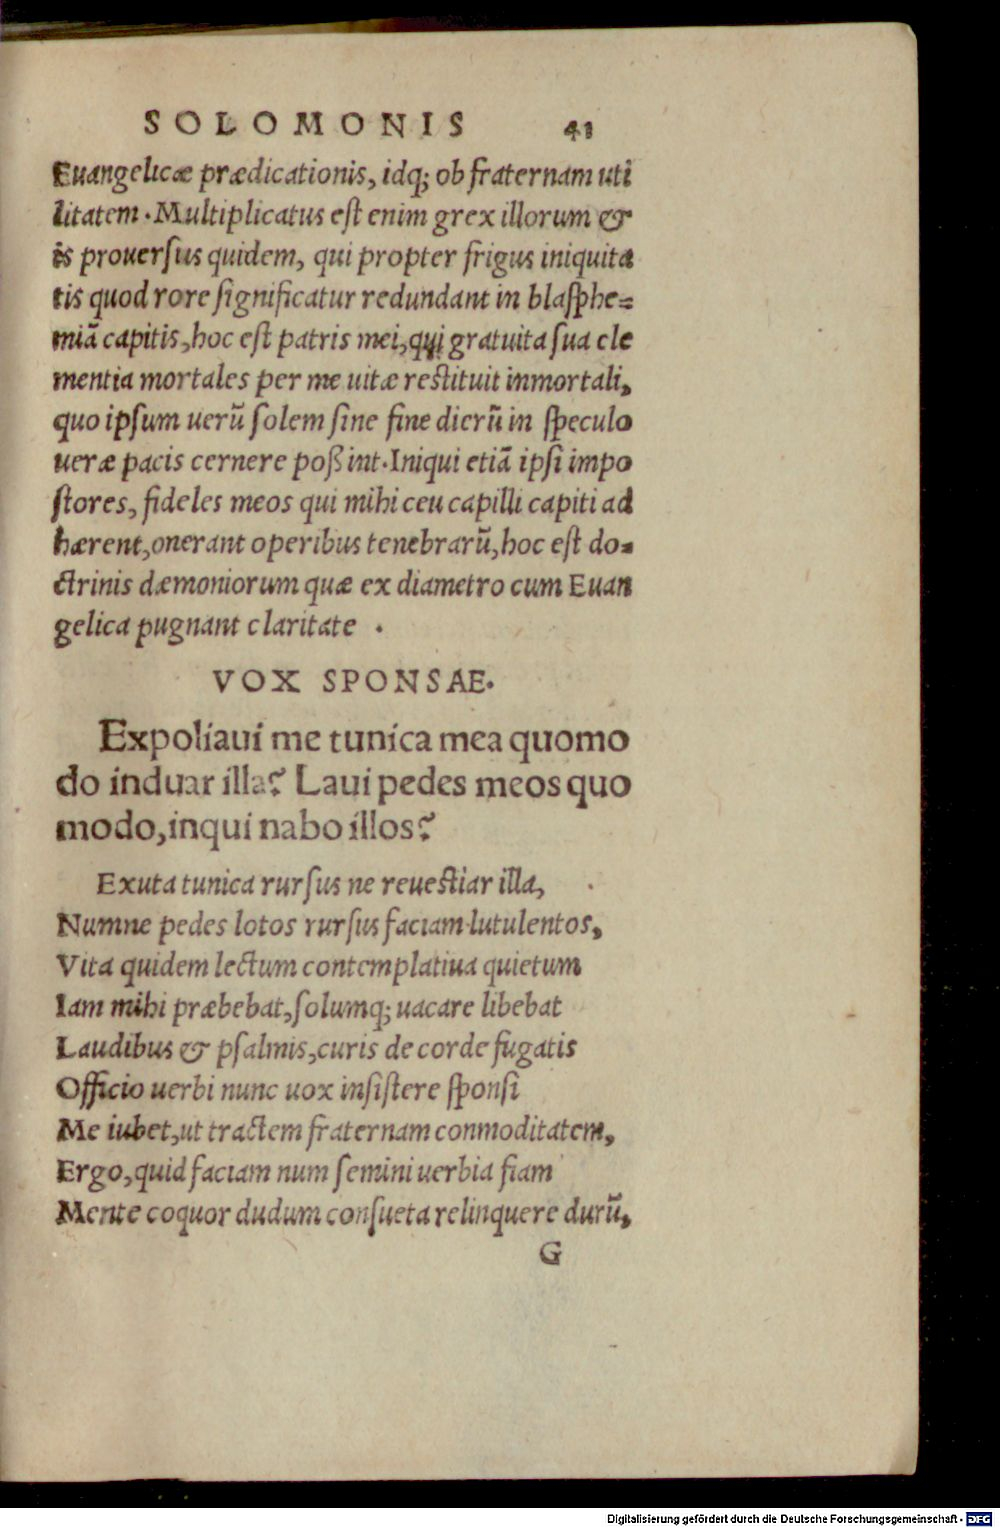 SOLOMONIS 41
Euangelicæ prædicationis, idq; ob fraternam uti
litatem. Multiplicatus est enim grex illorum &
is prouersus quidem, qui propter frigus iniquita
tis quod rore significatur redundant in blasphe=
miā capitis, hoc est patris mei, qui gratuita sua cle
mentia mortales per me uitæ restituit inmortali,
quo ipsum uerū solem sine fine dierū in speculo
ueræ pacis cernere poßint. Iniqui etiā ipsi impo
stores, fideles meos qui mihi ceu capilli capiti ad
hærent, onerant operibus tenebrarū, hoc est do=
ctrinis dæmoniorum quæ ex diametro cum Euan
gelica pugnant claritate .
VOX SPONSAE.
Expoliaui me tunica mea quomo
do induar illa? Laui pedes meos quo
modo, inqui nabo illos?
Exuta tunica rursus ne reuestiar illa,
Numne pedes lotos rursus faciam lutulentos,
Vita quidem lectum contemplatiua quietum
Iam mihi præbebat, solumq; uacare libebat
Laudibus & psalmis, curis de corde fugatis
Officio uerbi nunc uox insistere sponsi
Me iubet, ut tractem fraternam conmoditatem,
Ergo, quid faciam num semini uerbia fiam
Mente coquor dudum consueta relinquere durū,
G
Digitalisierung gefördert durch die Deutsche Forschungsgemeinschaft - DFG